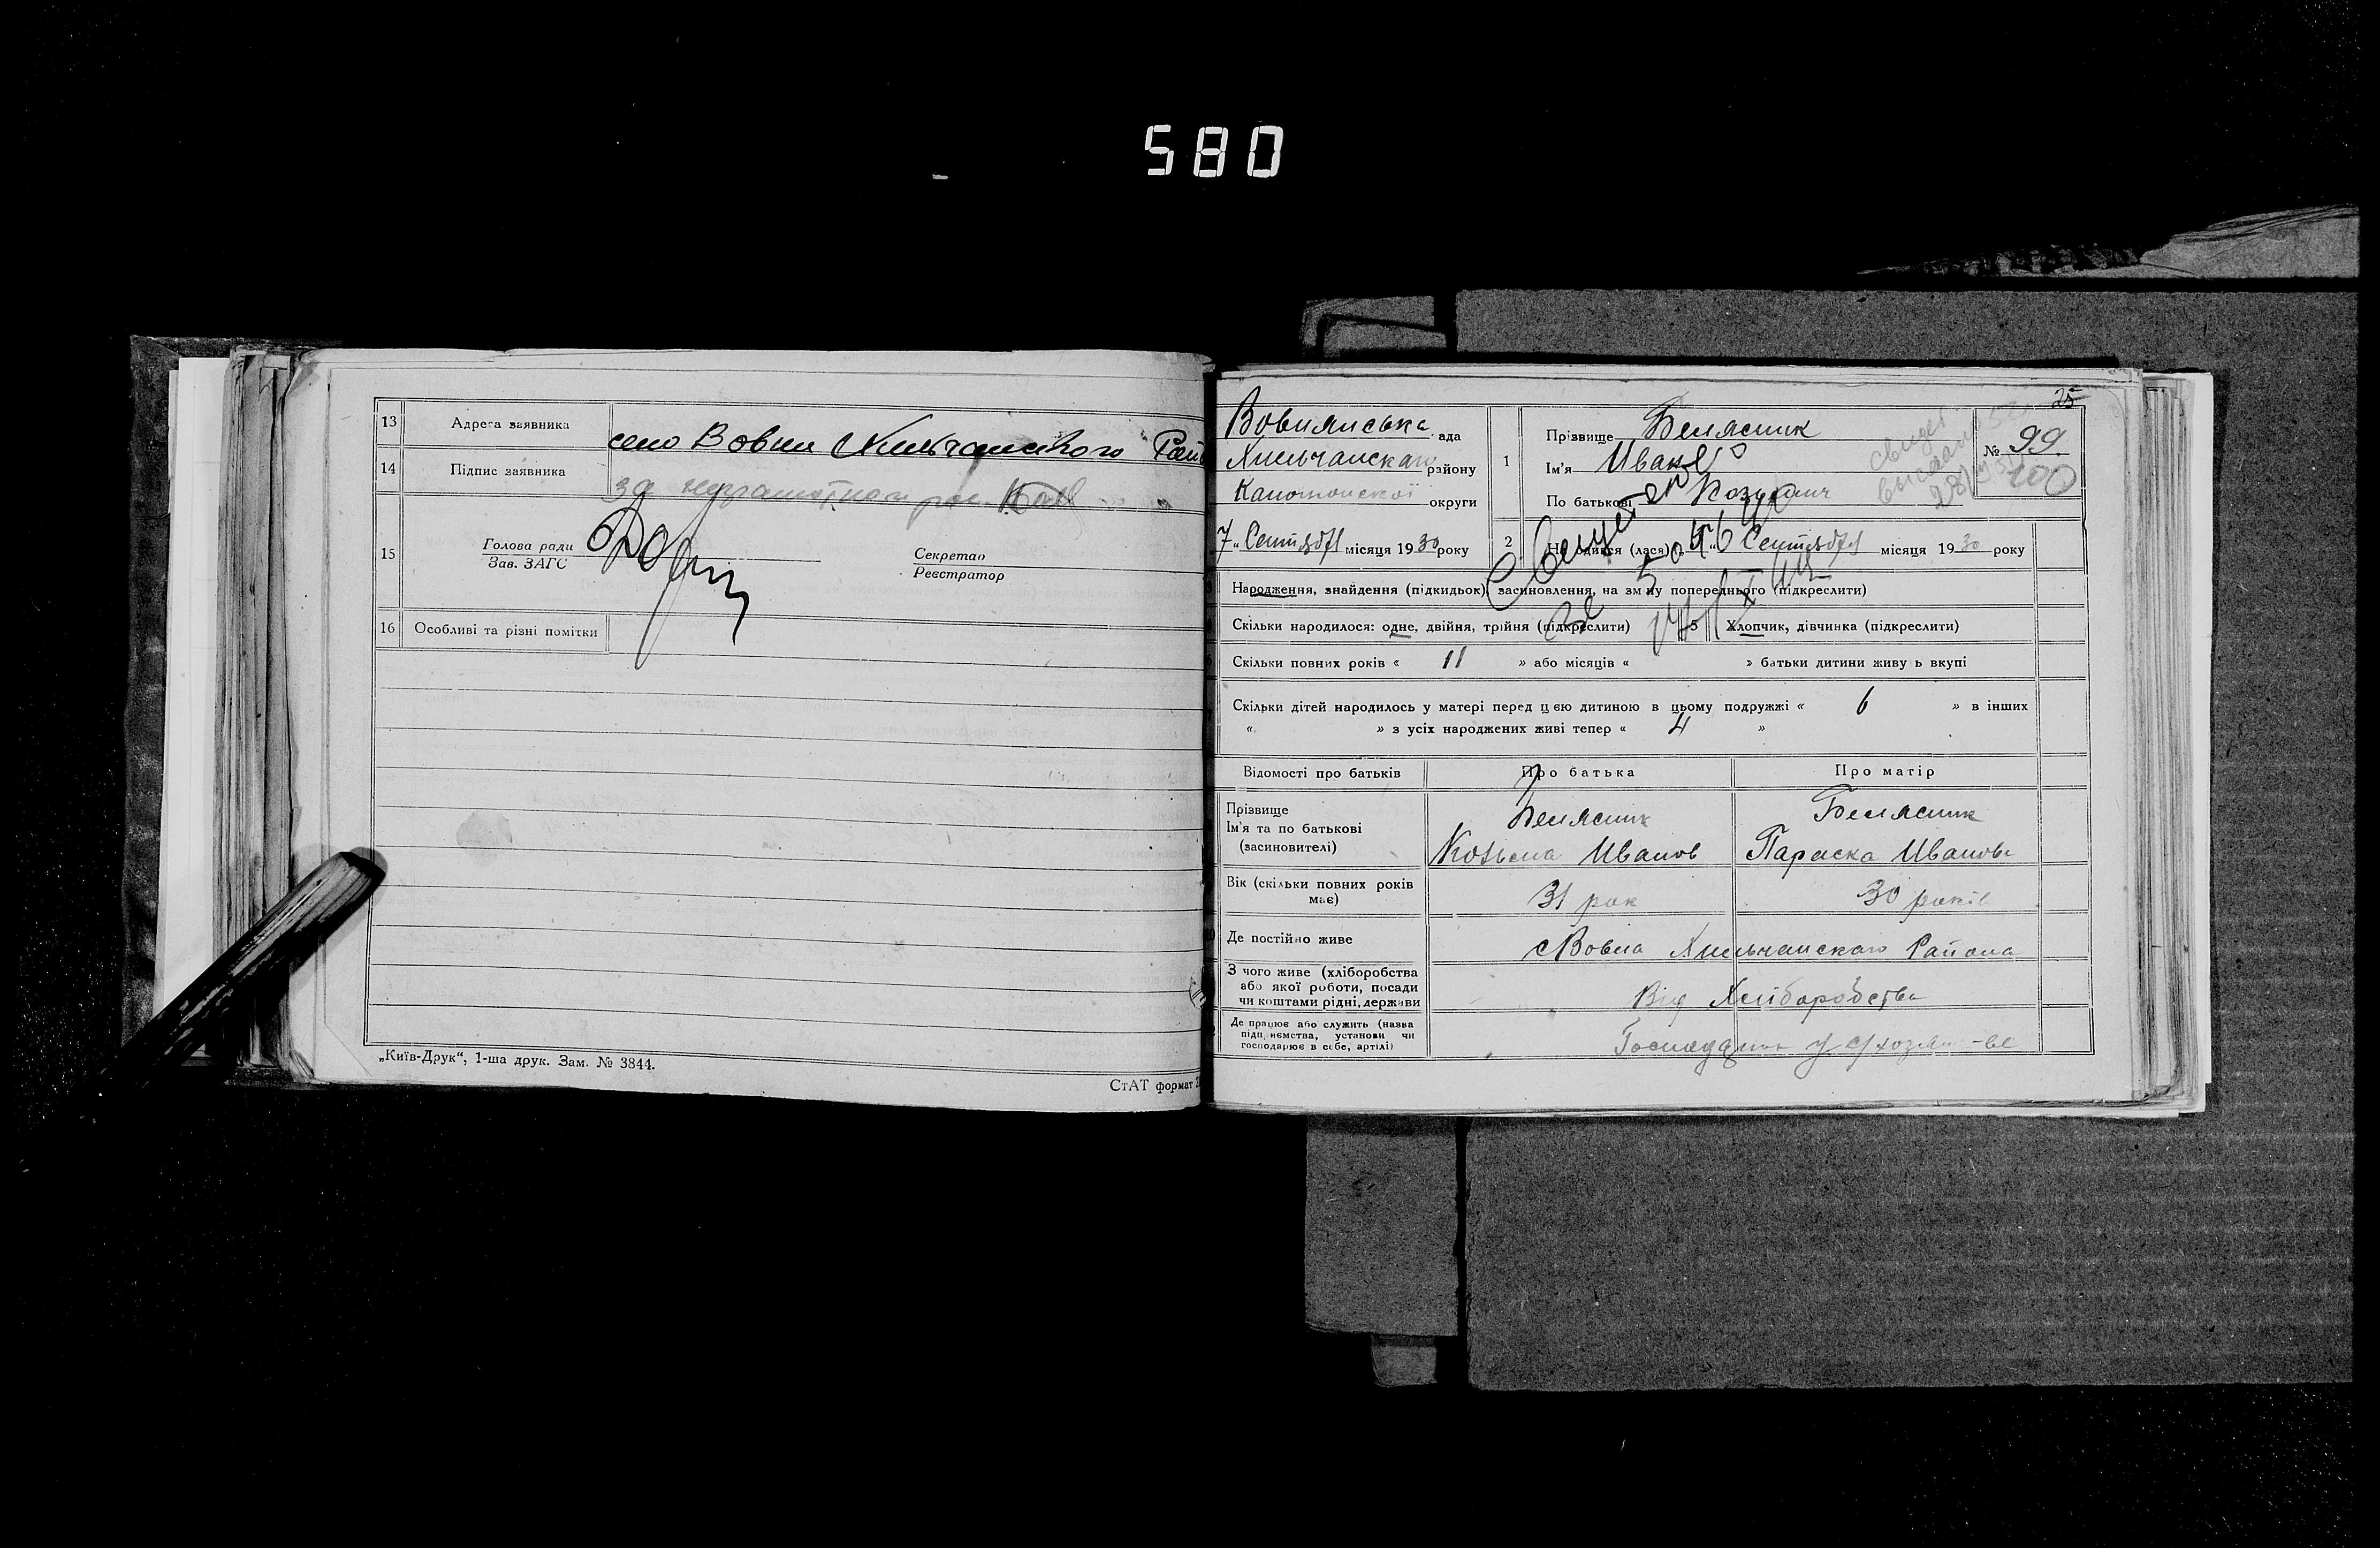 580
13 Адреса заявника село Вовни Хильчанского Рай
14 Підпис заявника за неграмотного рос.
15 Голова ради
Зав. ЗАГС
Секретар
Реєстратор
16 Особливі та різні помітки
„Київ-Друк“, 1-ша друк. Зам. № 3844.
СтАТ формат
25
Вовнянська ада
Хильчанскаго району
Канотопскої округи
7 „ Сентября місяця 1930 року
1 Прізвище Белясник
Ім'я Иван
По батькові Козьмич
№ 99
100
2 На одився (лася) Сентября місяця 1930 року
Народження, знайдення (підкидьок), засиновлення, на зм ну попереднього (підкреслити)
Скільки народилося: одне, двійня, трійня (підкреслити) 5 Хлопчик, дівчинка (підкреслити)
Скільки повних років « 11 » або місяців « » батьки дитини живу ь вкупі
Скільки дітей народилось у матері перед цією дитиною в цьому подружжі « 6 » в інших
« » з усіх народжених живі тепер « 4 »
Відомості про батьків Про батька Про матір
Прізвище Белясник Белясник
Ім'я та по батькові
(засиновителі) Козьма Иванов Параска Иванов
Вік (скільки повних років
має) 31 рок 30 років
Де постійно живе с Вовна Хильчанскаго Района
З чого живе (хліборобства
або якої роботи, посади
чи коштами рідні, держави Від Хліборобства
Де працює або служить (назва
підприємства, установи чи
господарює в себе, артілі)